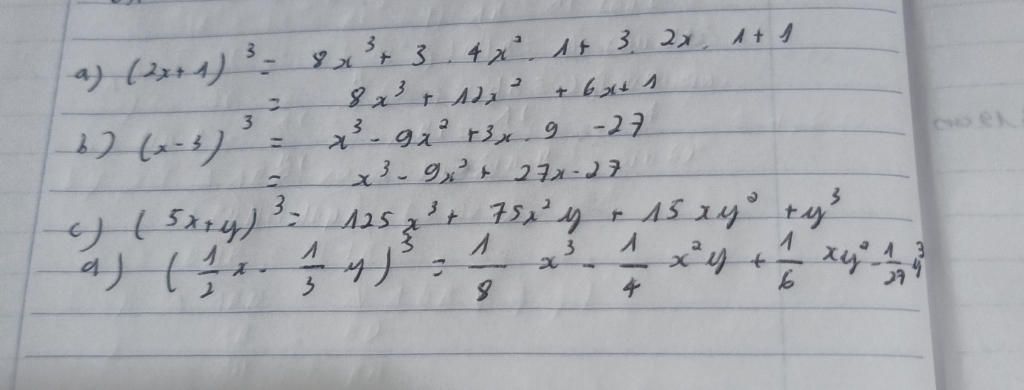 a) (2x+1)³ = 8x³ + 3 . 4x² . 1 + 3 . 2x . 1 + 1
= 8x³ + 12x² + 6x + 1
b) (x-3)³ = x³ - 9x² + 3x . 9 - 27
= x³ - 9x² + 27x - 27
c) (5x+y)³ = 125x³ + 75x²y + 15xy² + y³
d) (1/2 x - 1/3 y)³ = 1/8 x³ - 1/4 x²y + 1/6 xy² - 1/27 y³